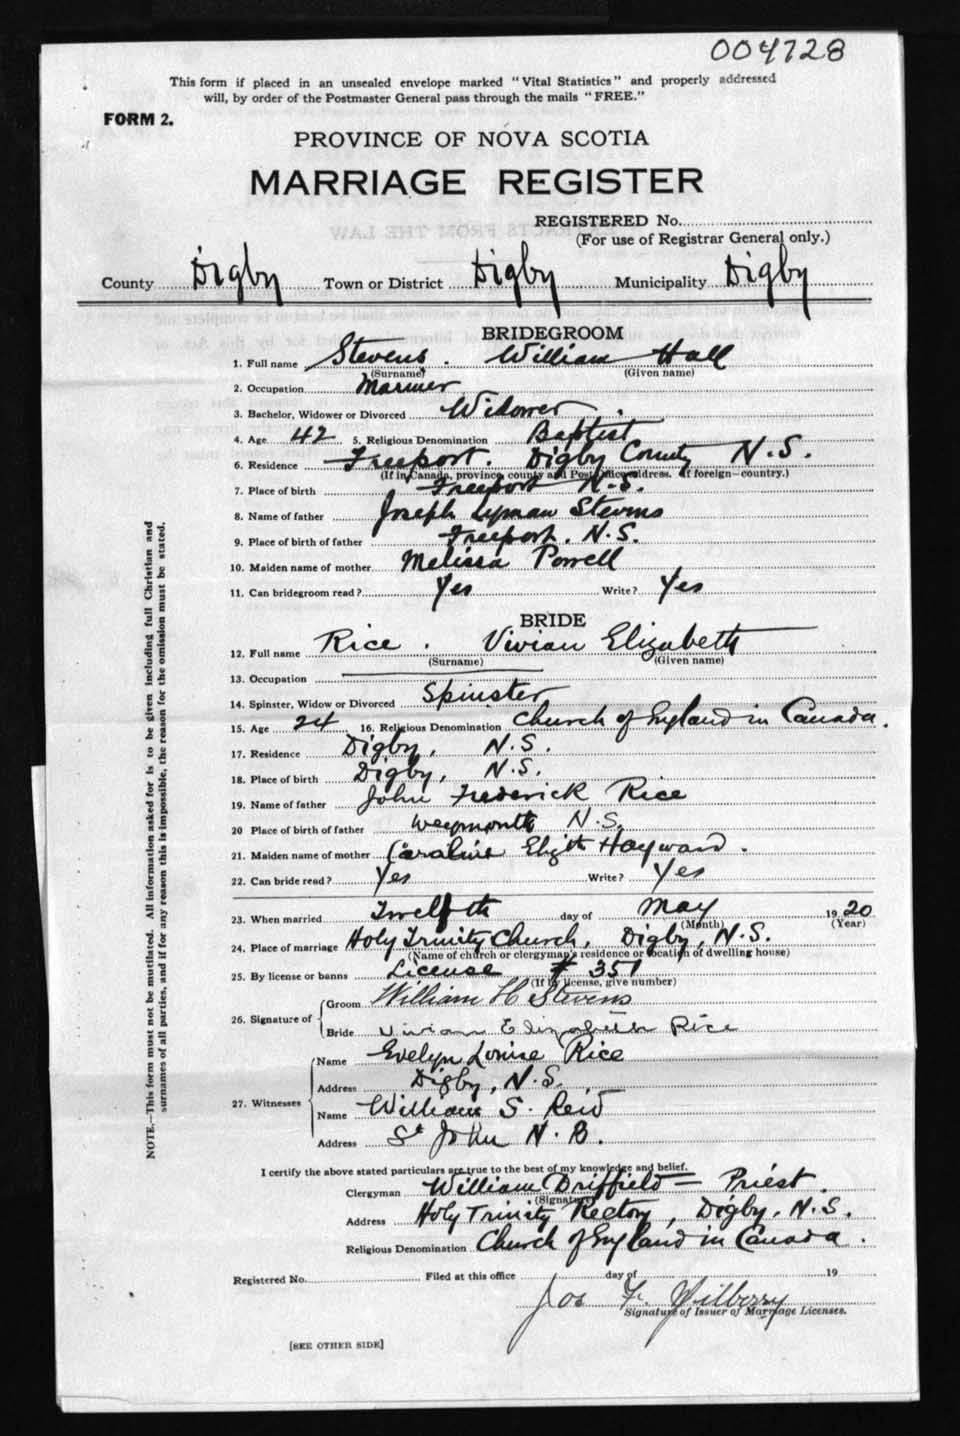 004728
This form if placed in an unsealed envelope marked "Vital Statistics" and properly addressed
will, by order of the Postmaster General pass through the mails "FREE."
FORM 2.
PROVINCE OF NOVA SCOTIA
MARRIAGE REGISTER
REGISTERED No.
(For use of Registrar General only.)
County Digby Town or District Digby Municipality Digby
BRIDEGROOM
1. Full name Stevens. William Hall
(Surname) (Given name)
2. Occupation Mariner
3. Bachelor, Widower or Divorced Widower.
4. Age 42 5. Religious Denomination Baptist
6. Residence Freeport. Digby County N.S.
(If in Canada, province, county and Post Office address. If foreign—country.)
7. Place of birth Freeport N.S.
8. Name of father Joseph Lyman Stevens
9. Place of birth of father Freeport. N.S.
10. Maiden name of mother Melissa Powell
11. Can bridegroom read? Yes Write? Yes
BRIDE
12. Full name Rice. Vivian Elizabeth
(Surname) (Given name)
13. Occupation
14. Spinster, Widow or Divorced Spinster
15. Age 24 16. Religious Denomination Church of England in Canada.
17. Residence Digby, N.S.
18. Place of birth Digby, N.S.
19. Name of father John Frederick Rice
20 Place of birth of father Weymouth N.S.
21. Maiden name of mother Caroline Elizth Hayward.
22. Can bride read? Yes Write? Yes
23. When married Twelfth day of May 1920
(Month) (Year)
24. Place of marriage Holy Trinity Church, Digby, N.S.
(Name of church or clergyman's residence or location of dwelling house)
25. By license or banns License # 351
(If by license, give number)
26. Signature of
Groom William H Stevens
Bride Vivian Elizabeth Rice
27. Witnesses
Name Evelyn Louise Rice
Address Digby, N.S.
Name William S. Reid
Address St John N.B.
I certify the above stated particulars are true to the best of my knowledge and belief.
Clergyman William Driffield — Priest.
(Signature)
Address Holy Trinity Rectory, Digby, N.S.
Religious Denomination Church of England in Canada.
Registered No. Filed at this office day of 19
Jos F.
Signature of Issuer of Marriage Licenses.
[SEE OTHER SIDE]
NOTE.—This form must not be mutilated. All information asked for is to be given including full Christian and
surnames of all parties, and if for any reason this is impossible, the reason for the omission must be stated.